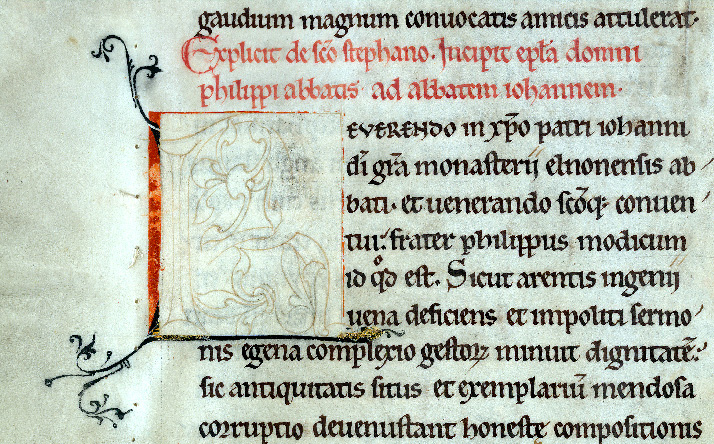 gaudium magnum convocatis amicis attulerat.
Explicit de sc̃o stephano. Incipit ep̃la domni
philippi abbatis ad abbatem iohannem.
REVERENDO in xp̃o patri iohanni
dĩ gr̃a monasterij elnonensis ab
bati. et uenerando sc̃oq; conuen
tui: frater philippus modicum
id qͦd est. Sicut arentis ingenij
uena deficiens et impoliti sermo
nis egena complexio gestoꝝ minuit dignitatẽ:
sic antiquitatis situs et exempla​riũ mendosa
corruptio deuenustant honestę compositionis